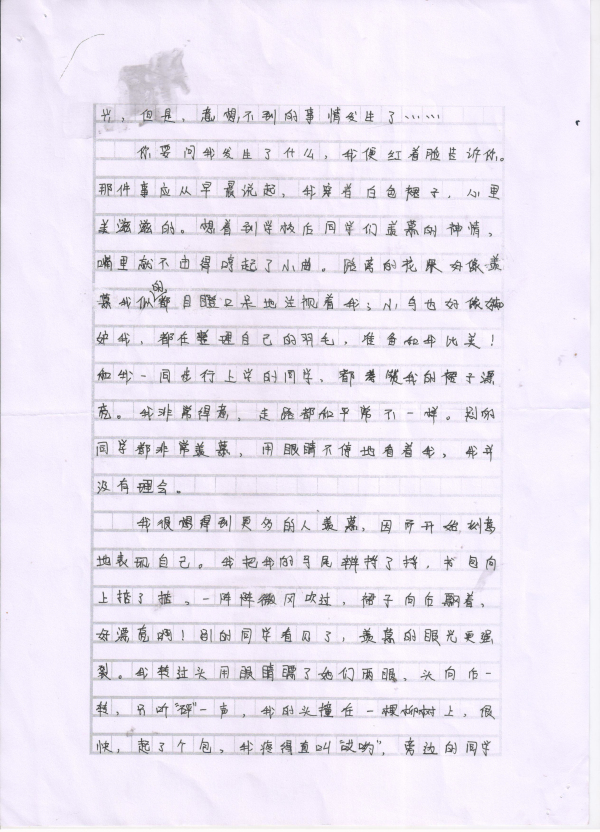 光，但是，意想不到的事情发生了……
你要问我发生了什么，我便红着脸告诉你。
那件事应从早晨说起，我穿着白色裙子，心里
美滋滋的。想着到学校后同学们羡慕的神情，
嘴里就不由得哼起了小曲。路旁的花朵好像羡
慕我似的都目瞪口呆地注视着我；小鸟也好像
妒我，都在整理自己的羽毛，准备和我比美！
和我一同步行上学的同学，都夸赞我的裙子漂
亮。我非常得意，走路都和平常不一样。别的
同学都非常羡慕，用眼睛不停地看着我，我并
没有理会。
我很想得到更多的人羡慕，因而开始刻意
地表现自己。我把我的马尾辫捋了捋，书包向
上掂了掂，一阵阵微风吹过，裙子向后飘着，
好漂亮啊！别的同学看见了，羡慕的眼光更强
裂。我转过头用眼睛瞟了她们两眼，头向后一
转，只听“砰”一声，我的头撞在一棵柳树上，很
快，起了个包，我疼得直叫“哎哟”，旁边的同学